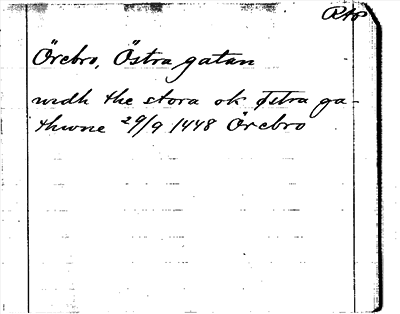 Örebro, Östra gatan
widh the stora ok østra ga-
thwne 29/9 1448 Örebro